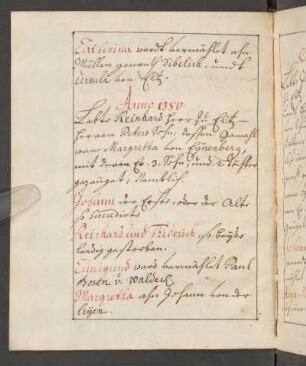 Catharina wardt vermählet ahn
Müllen genant Sibelich, undt
Ursula von Eltz.
Anno 1350.
Lebte Reinhard Herr zu Eltz
Herren Peters Sohn, dessen Gemahl
ware Margretha von Eÿnenberg,
mit deren Er 3. Söhn, und 2 Töchter
gezeuget, Namblich
Johann der Erste, oder der Alte
so
Reinhard und Friderich, so beÿde
ledig gestorben.
Cunigund ward vermählet Paul
Bosen v. Waldeck
Margretha ahn Johann von der
Leÿen.